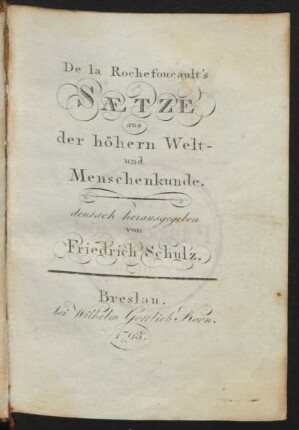 De la Rochefoucault's
SÆTZE
aus
der höhern Welt-
und
Menschenkunde.
deutsch herausgegeben
von
Friedrich Schulz.
Breslau.
bei Wilhelm Gottlieb Korn.
1793.